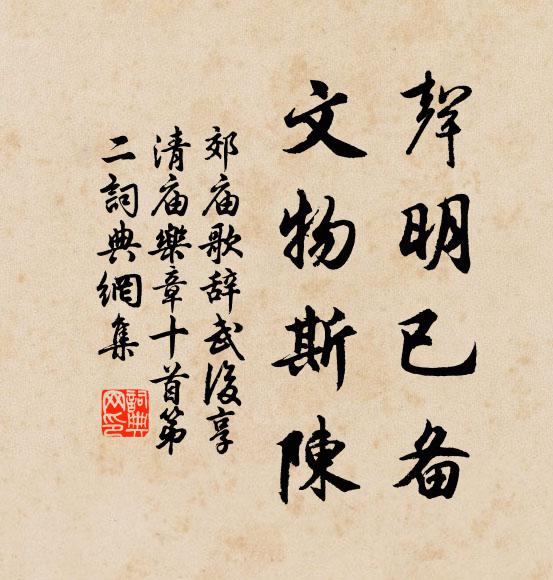 聲明已备
文物斯陳
郊庙歌辞武後享
清庙樂章十首第
二詞典網集
詞典
网印